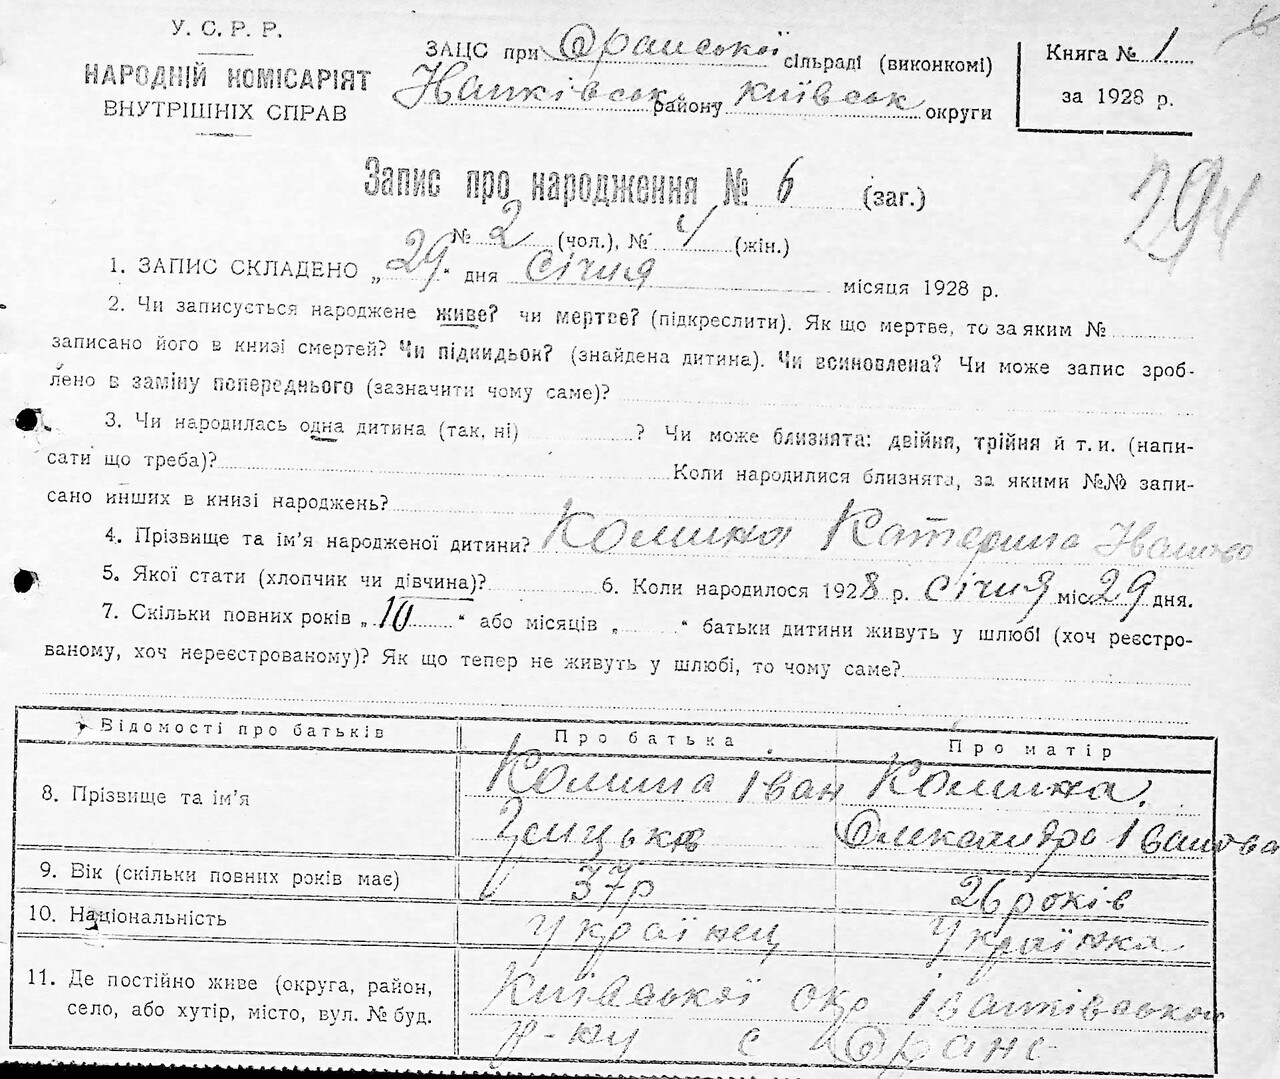 У. С. Р. Р.
НАРОДНІЙ КОМІСАРІЯТ
ВНУТРІШНІХ СПРАВ
ЗАЦС при Оранської сільраді (виконкомі)
району Київськ округи
Книга № 1
за 1928 р.
Запис про народження № 6 (заг.)
294
№ 2 (чол.), № 4 (жін.)
1. ЗАПИС СКЛАДЕНО „ 29 " дня січня місяця 1928 р.
2. Чи записується народжене живе? чи мертве? (підкреслити). Як що мертве, то за яким №
записано його в книзі смертей? Чи підкидьок? (знайдена дитина). Чи всиновлена? Чи може запис зроб-
лено в заміну попереднього (зазначити чому саме)?
3. Чи народилась одна дитина (так, ні) ? Чи може близнята: двійня, трійня й т. и. (напи-
сати що треба)? Коли народилися близнята, за якими №№ запи-
сано инших в книзі народжень?
4. Прізвище та ім'я народженої дитини? Катерина
5. Якої стати (хлопчик чи дівчина)? 6. Коли народилося 1928 р. січня міс. 29 дня.
7. Скільки повних років „ 10 " або місяців „ " батьки дитини живуть у шлюбі (хоч реєстро-
ваному, хоч нереєстрованому)? Як що тепер не живуть у шлюбі, то чому саме?
Відомості про батьків Про батька Про матір
8. Прізвище та ім'я Іван
Олександра Іванова
9. Вік (скільки повних років має) 37 р 26 років
10. Національність Українець Українка
11. Де постійно живе (округа, район, Київської окр Іванківського
село, або хутір, місто, вул. № буд. р-ну с Оране